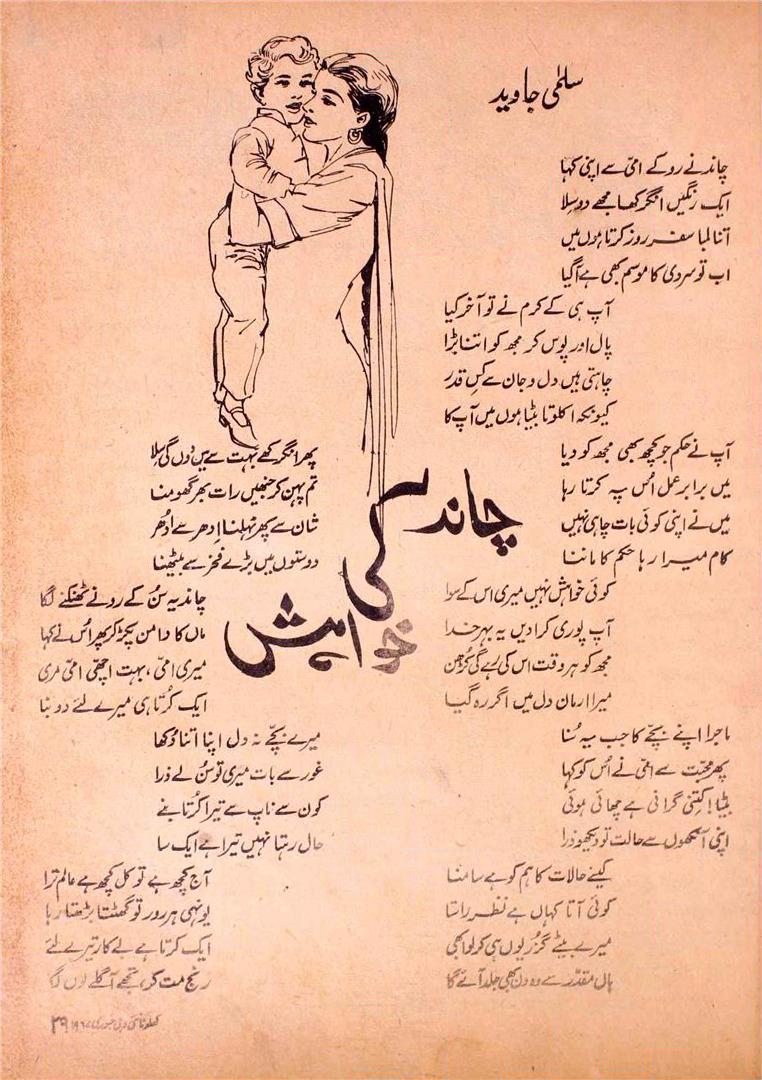 سلمٰی جاوید
چاند کی خواہش
چاند نے رو کے امّی سے اپنی کہا
ایک رنگیں انگرکھا مجھے دو سِلا
اتنا لمبا سفر روز کرتا ہوں میں
اب تو سردی کا موسم بھی ہے آگیا
آپ ہی کے کرم نے تو آخر کیا
پال اور پوس کر مجھ کو اتنا بڑا
چاہتی ہیں دل و جان سے کس قدر
کیونکہ اکلوتا بیٹا ہوں میں آپ کا
آپ نے حکم جو کچھ بھی مجھ کو دیا
میں برابر عمل اُس پہ کرتا رہا
میں نے اپنی کوئی بات چاہی نہیں
کام میرا رہا حکم کا ماننا
کوئی خواہش نہیں میری اس کے سوا
آپ پوری کرا دیں یہ بہرِ خدا
مجھ کو ہر وقت اس کی رہے گی کڑھن
میرا ارمان دل میں اگر رہ گیا
ماجرا اپنے بچّے کا جب یہ سُنا
پھر محبّت سے امّی نے اُس کو کہا
بیٹا! کتنی گرانی ہے چھائی ہوئی
اپنی آنکھوں سے حالت تو دیکھو ذرا
کیسے حالات کا ہم کو ہے سامنا
کوئی آتا کہاں ہے نظر راستا
میرے بیٹے گزر یوں ہی کر لو ابھی
ہاں مقدّر سے وہ دن بھی جلد آئے گا
پھر انگرکھے بہت سے میں دوں گی سِلا
تم پہن کر جنھیں رات بھر گھومنا
شان سے پھر ٹہلنا اِدھر سے اُدھر
دوستوں میں بڑے فخر سے بیٹھنا
چاند یہ سُن کے رونے ٹھنکنے لگا
ماں کا دامن پکڑ کر پھر اُس نے کہا
میری امّی، بہت اچھّی امّی مری
ایک کُرتا ہی میرے لئے دو بنا
میرے بچّے نہ دل اپنا اتنا دُکھا
غور سے بات میری تو سُن لے ذرا
کون سے ناپ سے تیرا کُرتا بنے
حال رہتا نہیں تیرا ہے ایک سا
آج کچھ ہے تو کل کچھ ہے عالم ترا
یونہی ہر روز تو گھٹتا بڑھتا رہا
ایک کرتا ہے بے کار تیرے لئے
رنج مت کر، تجھے آ گلے لوں لگا
کھلونا نئی دہلی جنوری ۳۹